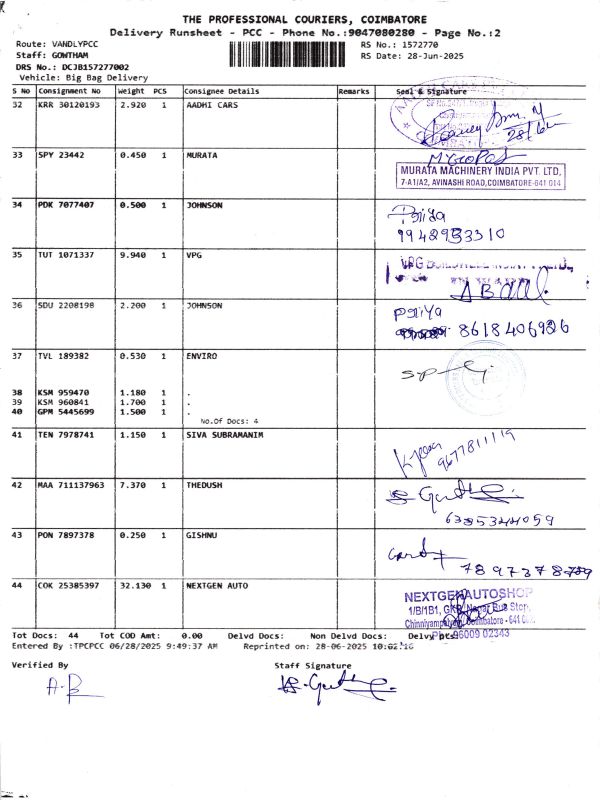 THE PROFESSIONAL COURIERS, COIMBATORE
Delivery Runsheet - PCC - Phone No.:9047080280 - Page No.:2
Route: VANDLYPCC
RS No.: 1572770
Staff: GOWTHAM
RS Date: 28-Jun-2025
DRS No.: DCJB157277002
Vehicle: Big Bag Delivery
S No Consignment No Weight PCS Consignee Details Remarks Seal & Signature
32 KRR 30120193 2.920 1 AADHI CARS
28/6/
33 SPY 23442 0.450 1 MURATA
MURATA MACHINERY INDIA PVT. LTD,
7-A1/A2, AVINASHI ROAD, COIMBATORE-641 014
34 PDK 7077407 0.500 1 JOHNSON Priya
9942953310
35 TUT 1071337 9.940 1 VPG VPG
36 SDU 2208198 2.200 1 JOHNSON Priya
8618406926
37 TVL 189382 0.530 1 ENVIRO
38 KSM 959470 1.180 1 .
39 KSM 960841 1.700 1 .
40 GPM 5445699 1.500 1 .
No.Of Docs: 4
41 TEN 7978741 1.150 1 SIVA SUBRAMANIM
9677811119
42 MAA 711137963 7.370 1 THEDUSH
6385344059
43 PON 7897378 0.250 1 GISHNU
7897378789
44 COK 25385397 32.130 1 NEXTGEN AUTO
NEXTGEN AUTOSHOP
1/B/1B1, GKR Nagar Bus Stop,
Coimbatore - 641
Ph: 96009 02343
Tot Docs: 44 Tot COD Amt: 0.00 Delvd Docs: Non Delvd Docs: Delvy pcs:
Entered By :TPCPCC 06/28/2025 9:49:37 AM Reprinted on: 28-06-2025 10:02:16
Verified By Staff Signature